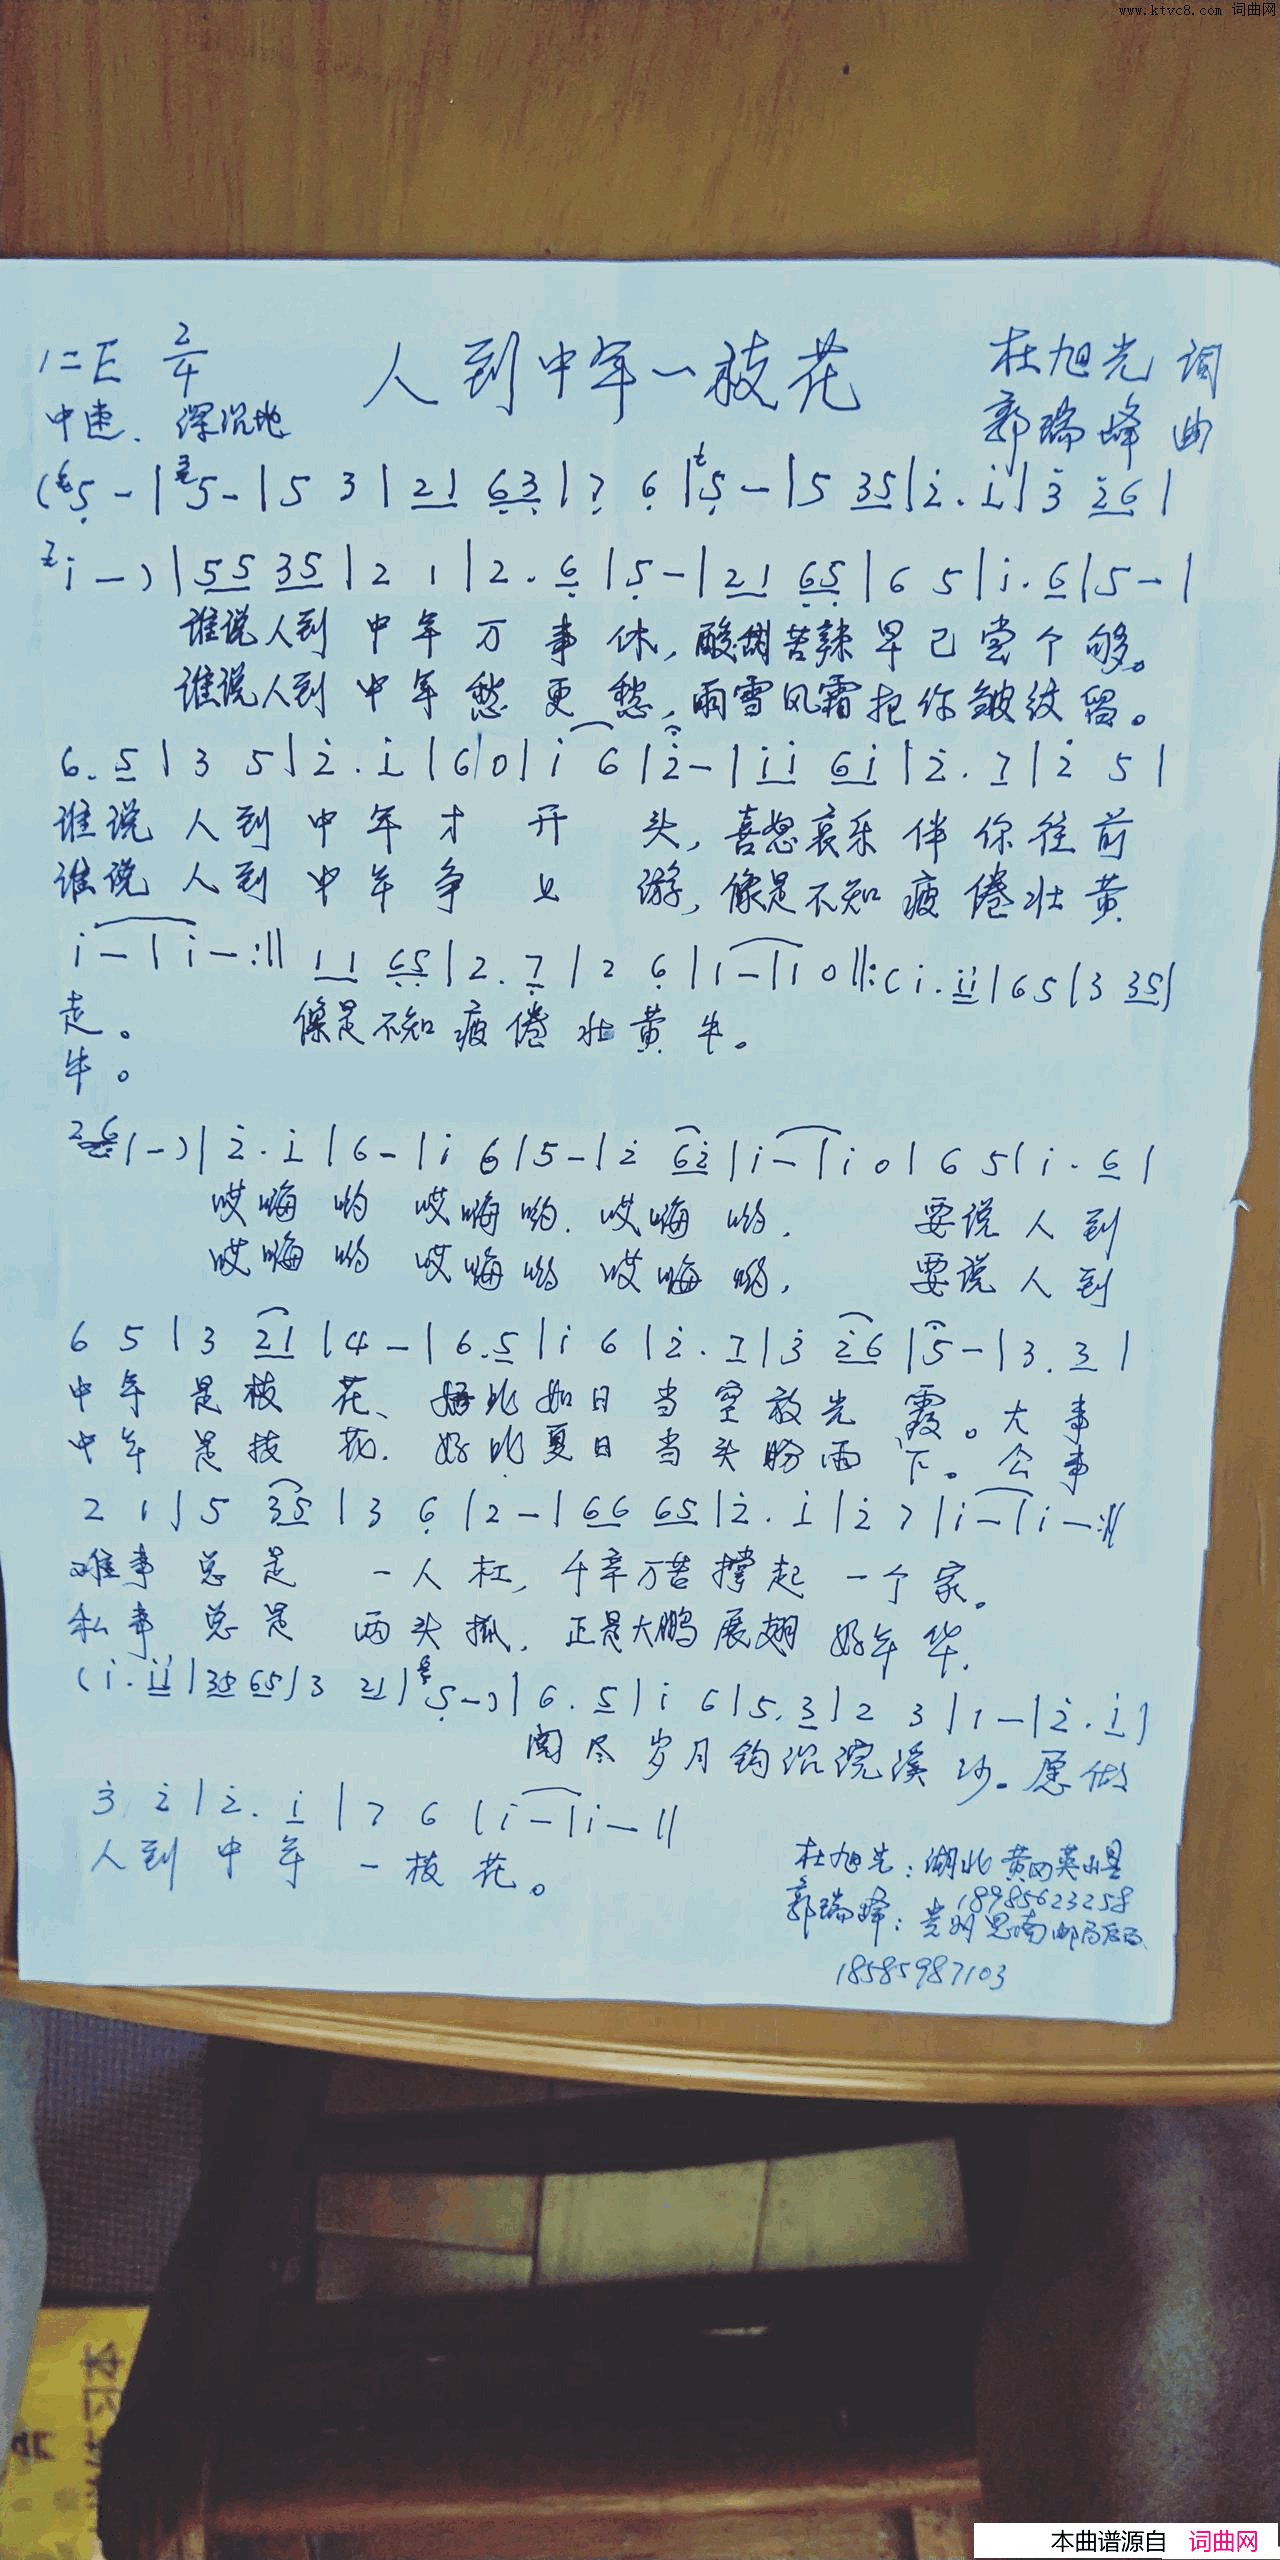 www.ktvc8.com 词曲网
1=E 2/4 人到中年一枝花 杜旭光 词
中速. 深沉地 郭瑞峰 曲
(5 - | 5 - | 5 3 | 21 63 | 7 6 | 5 - | 5 35 | i̇ 2̇. i | 3̇ 2̇6 |
i -) | 55 35 | 2 1 | 2. 6 | 5 - | 21 65 | 6 5 | i. 6 | 5 - |
谁说人到中年万事休,酸甜苦辣早已尝个够。
谁说人到中年愁更愁,雨雪风霜把你皱纹留。
6. 5 | 3 5 | 2̇. i | 6 | 0 | i 6 | 2̇ - | ii 6i | 2̇. 7 | 2̇ 5 |
谁说人到中年才开头,喜怒哀乐伴你往前
谁说人到中年争上游,像是不知疲倦壮黄
i - | i - :|| 11 65 | 2. 7 | 2 6 | 1 - | 1 0 ||: (i. ii | 65 | 3 35 |
走。 像是不知疲倦壮黄牛。
牛。
26 | 1 -) | 2̇. i | 6 - | i 6 | 5 - | 2̇ 62̇ | i - | i 0 | 6 5 | i. 6 |
哎嗨哟 哎嗨哟. 哎嗨哟, 要说人到
哎嗨哟 哎嗨哟 哎嗨哟, 要说人到
6 5 | 3 21 | 4 - | 6. 5 | i 6 | 2̇. 7 | 3̇ 2̇6 | 5 - | 3. 3 |
中年是枝花、好比如日当空放光霞。大事
中年是枝花. 好比夏日当头盼雨下。公事
2 1 | 5 35 | 3 6 | 2 - | 66 65 | 2̇. i | 2̇ 7 | i - | i - :||
难事总是一人杠,千辛万苦撑起一个家。
私事总是两头抓,正是大鹏展翅好年华.
(i. ii | 35 65 | 3 21 | 5 -) | 6. 5 | i 6 | 5. 3 | 2 3 | 1 - | 2̇. i |
阅尽岁月钩沉浣溪沙。愿做
3̇ 2̇ | 2̇. i | 7 6 | i - | i - ||
人到中年一枝花。
杜旭光:湖北黄冈英山县
18985623258
郭瑞峰:贵州思南邮局
18585987103
本曲谱源自 词曲网